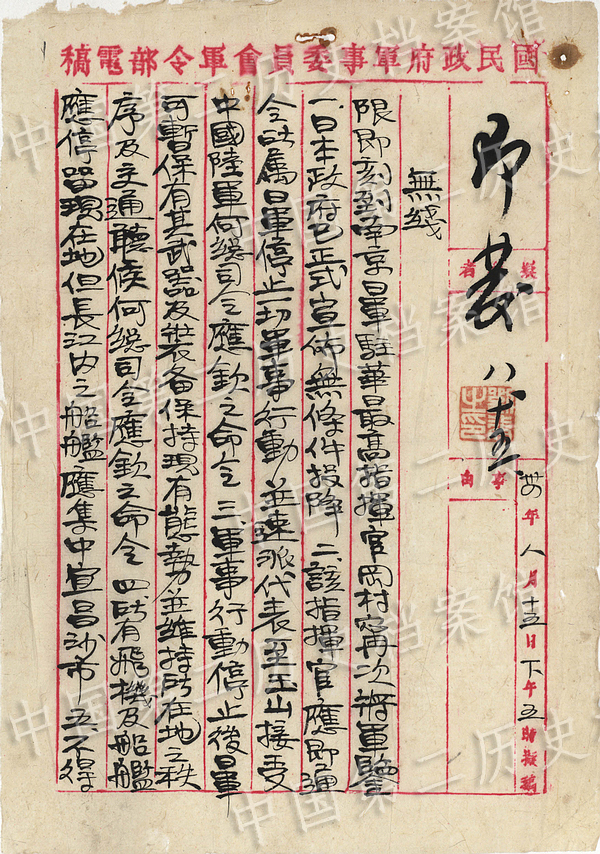 國民政府軍事委員會軍令部電稿
年八月十五日下午五時擬稿
事由
擬 者
即發 八、十五
無綫
限即刻到南京日軍駐華最高指揮官岡村寧次將軍鑒
一日本政府已正式宣佈無條件投降 二該指揮官應即通
令所屬日軍停止一切軍事行動並速派代表至玉山接受
中國陸軍何總司令應欽之命令 三軍事行動停止後日軍
可暫保有其武器及裝备保持現有態勢並維持所在地之秩
序及交通聽候何總司令應欽之命令 四所有飛機及船艦
應停留現在地但長江內之船艦應集中宜昌沙市 五不得
中国第二历史档案馆